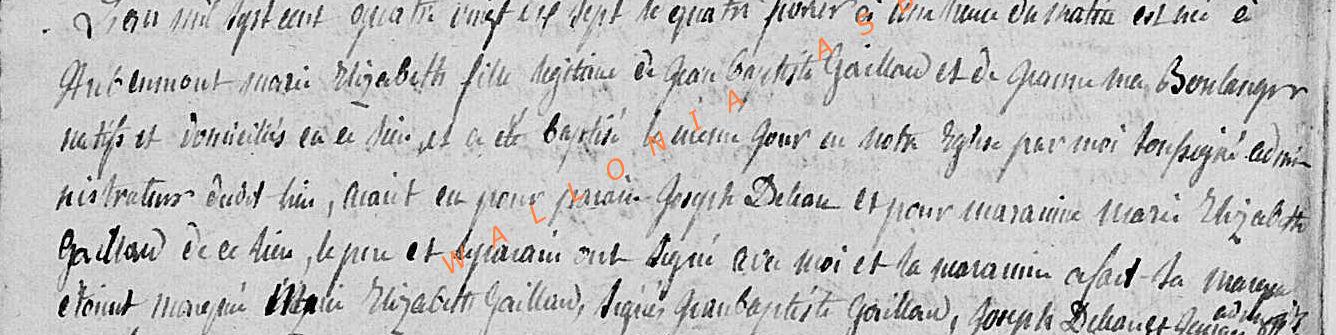 L'an mil sept cent quatre vingt dix sept le quatre fevrier à une heure du matin est née à
Aubenmont marie Elizabeth fille legitime de jean baptiste Gaillard et de jeanne me Boulanger
natifs et domiciliés en ce lieu, et a été baptisé le meme jour en notre Eglise par moi soussigné admi-
nistrateur dudit lieu, aiant eu pour parain joseph Dehan et pour maraine marie Elizabeth
Gaillard de ce lieu, le pere et le parain ont signé avec moi et la maraine a fait sa marque
etoient marqué Marie Elizabeth Gaillard, signés jeanbaptiste Gaillard, joseph Dehan et
WALLONIA ASB